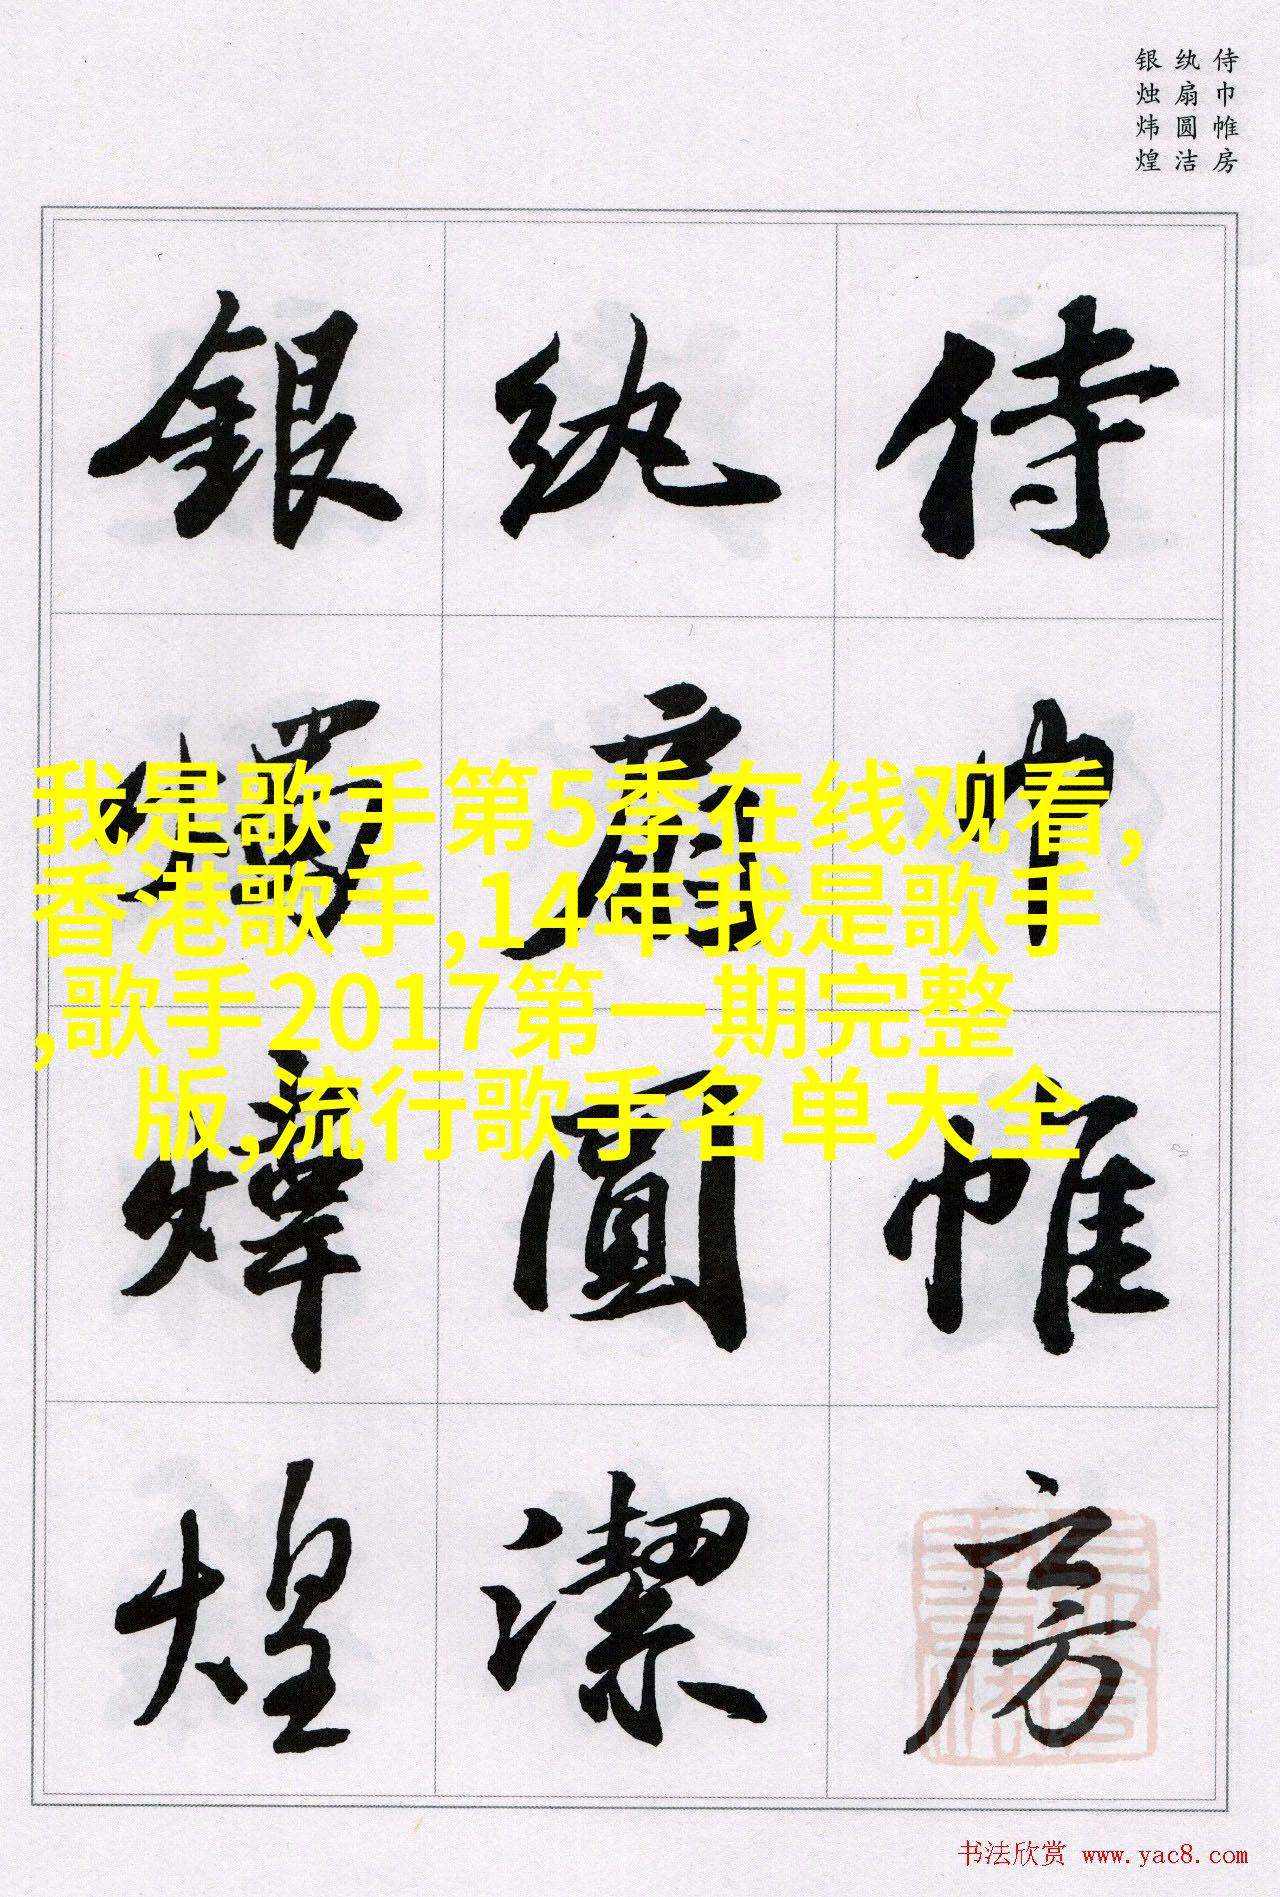 侍巾帷房
纨扇圆洁
银烛炜煌
侍巾帷房
紈扇圓潔
銀燭煒煌
我是歌手第5季在线观看,
香港歌手,14年我是歌手
,歌手2017第一期完整
版,流行歌手名单大全
书法欣赏 www.yac8.com